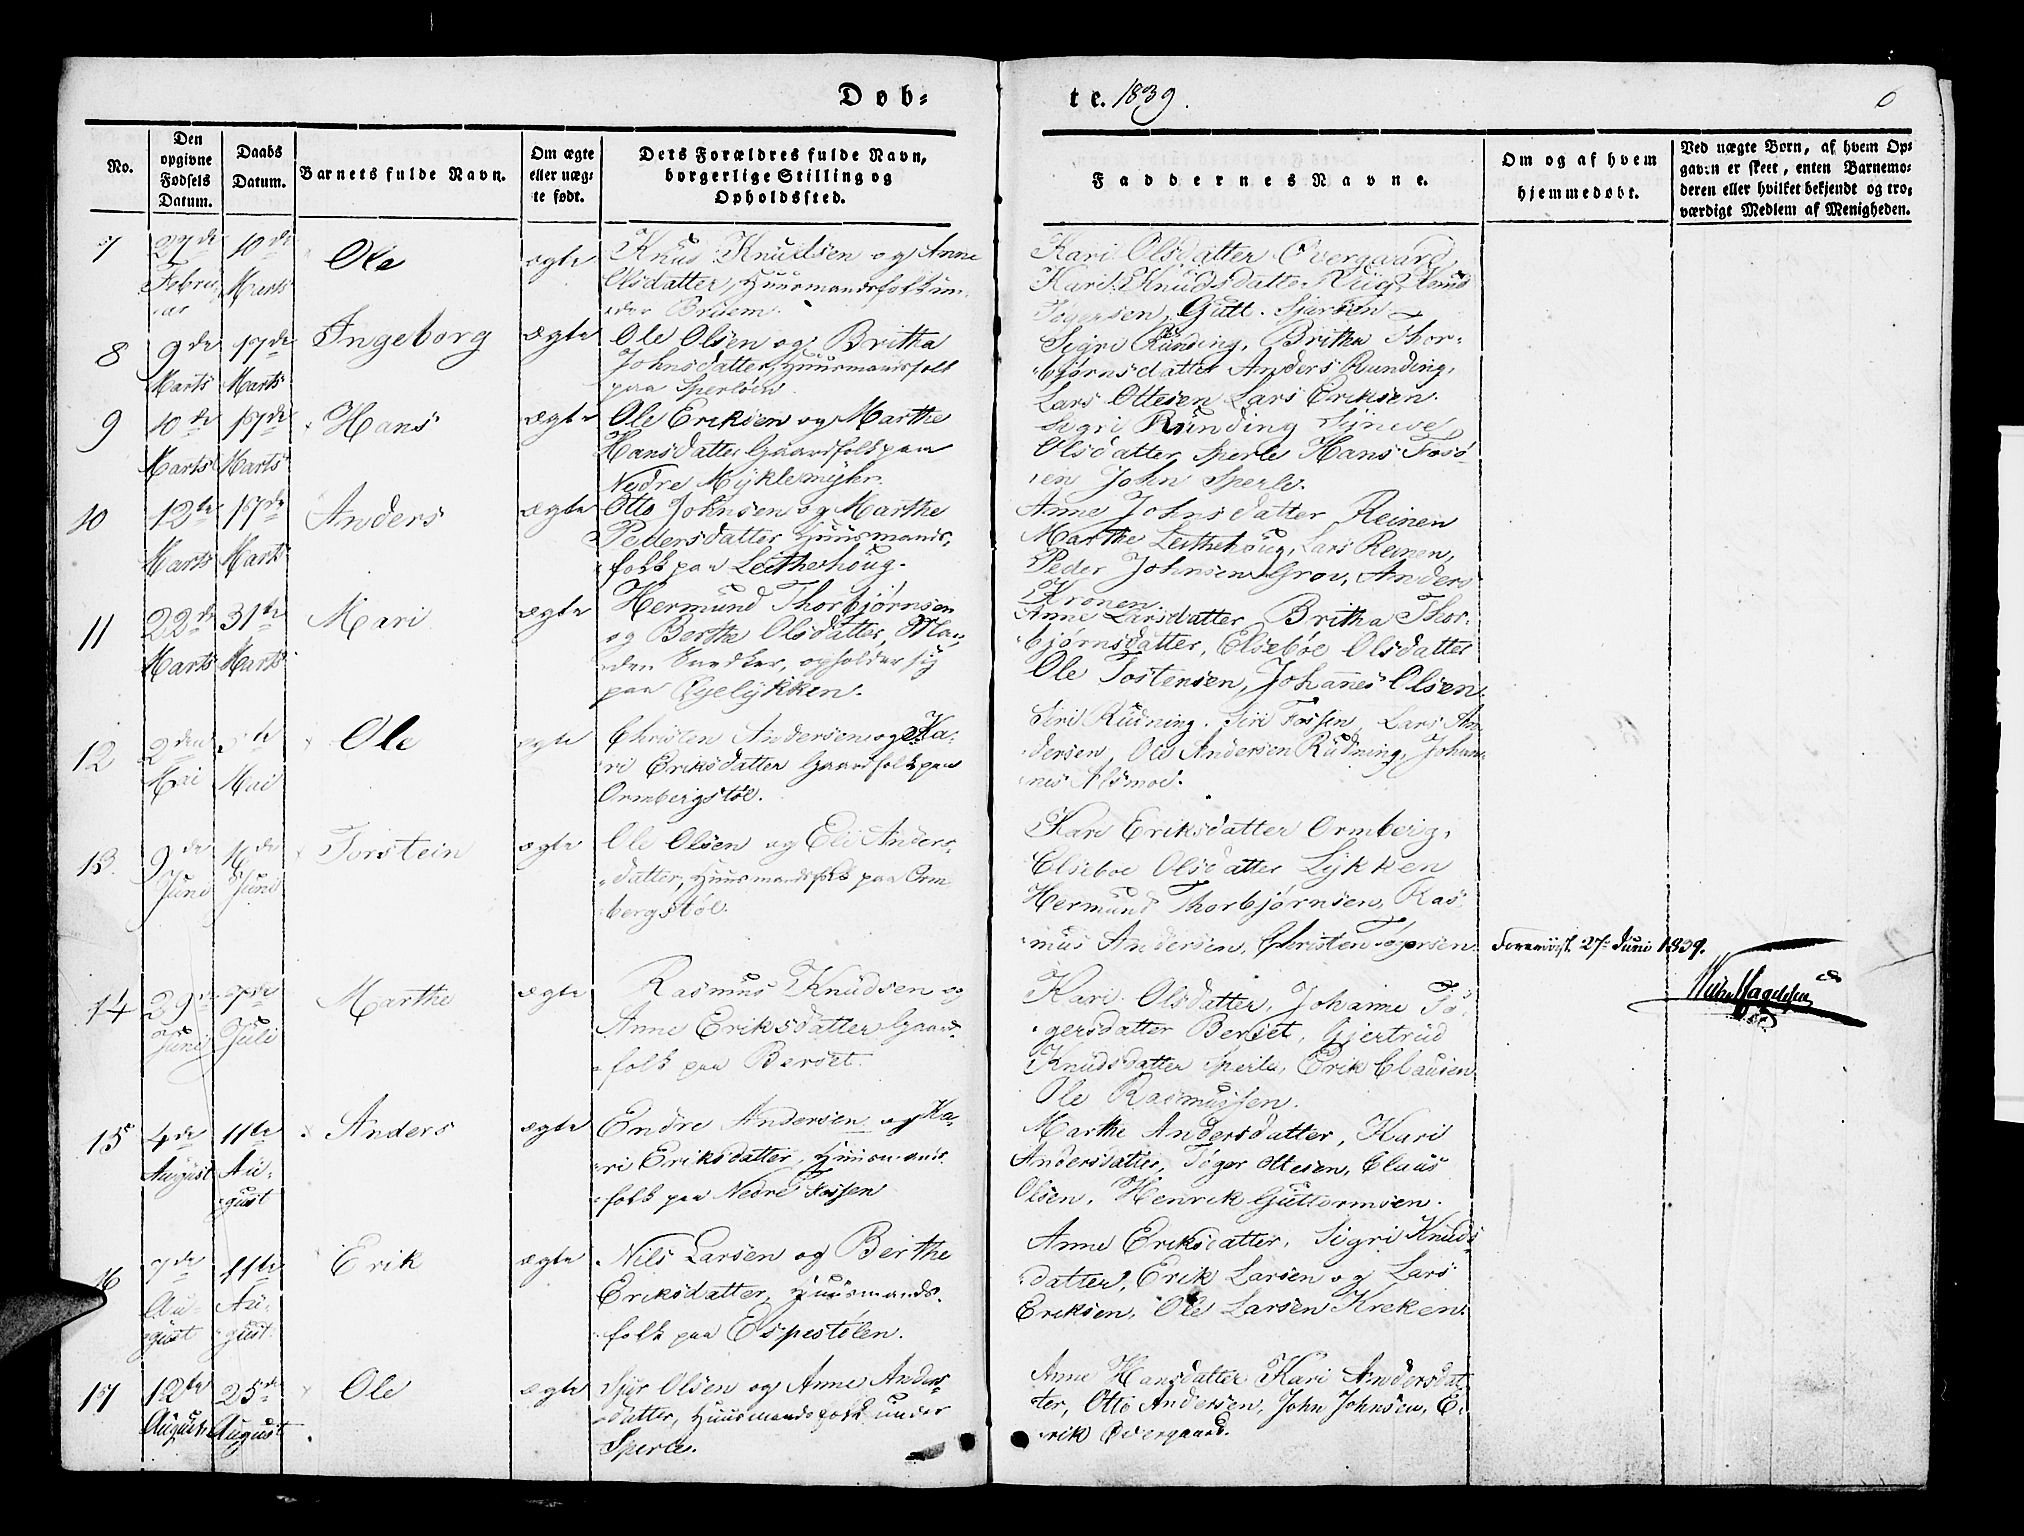 Døb-
te. 1839.
No.
Den opgivne Fødsels Datum.
Daabs Datum.
Barnets fulde Navn.
Om ægte eller uæg-te født.
Dets Forældres fulde Navn, borgerlige Stilling og Opholdssted.
Faddernes Navne.
Om og af hvem hjemmedøbt.
Ved uægte Børn, af hvem Op-
gaven er skeet, enten Barnemo-
deren eller hvilket bekjendt og tro-
værdigt Medlem af Menigheden.
7 27de Februar 10de Marts Ole ægte
Knud Knudsen og Anne
Olsdatter, Huusmandsfolk un-
der Bruem.
Kari Olsdatter Overgaard,
Kari Knudsdatter Knud
Tøgersen, Gutt. Sjursen
8 9de Marts 17de Marts Ingeborg ægte
Ole Olsen og Britha
Johnsdatter, Huusmandsfolk
paa Sperløen.
Sigri Runding, Britha Thor-
bjørnsdatter Anders Runding,
Lars Ottesen Lars Eriksen.
9 10de Marts 17de Marts Hans ægte
Ole Eriksen og Marthe
Hansdatter Gaardfolk paa
Nedre Myklemyhr.
Sigri Runding Synneve
Olsdatter Sperle Hans Fosø-
ien John Sperle.
10 12te Marts 17de Marts Anders ægte
Otto Johnsen og Marthe
Pedersdatter Huusmands-
folk paa Leithehoug.
Anne Johnsdatter Reinen
Marthe Leithehoug, Lars Reinen,
Peder Johnsen Grov, Anders
Kronen.
11 22de Marts 31te Marts Mari ægte
Hermund Thorbjørnsen
og Berthe Olsdatter, Man-
den Snedker, opholder sig
paa Øyelykken.
Anne Larsdatter Britha Thor-
bjørnsdatter, Elsebøe Olsdatter
Ole Tostensen, Johannes Olsen.
12 2den Mai Mai Ole ægte
Christen Andersen og Ka-
ri Eriksdatter Gaardfolk paa
Ormbergstøl.
Siri Rudning. Siri Fossen, Lars An-
dersen, Ole Andersen Rudning, Johan-
nes Alsmoe.
13 9de Juni 16de Juni Torstein ægte
Ole Olsen og Eli Anders-
datter, Huusmandsfolk paa Orm-
bergstøl.
Kari Eriksdatter Ormberg,
Elseboe Olsdatter Lykken
Hermund Thorbjørnsen, Ras-
mus Andersen, Christen Tøgersen.
Foreviist 27de Juni 1839.
14 29de Juni 7de Juli Marthe ægte
Rasmus Knudsen og
Anne Eriksdatter Gaard-
folk paa Berset.
Kari Olsdatter, Johanne Tø-
gersdatter Berset, Gjertrud
Knudsdatter Sperle, Erik Clausen
Ole Rasmussen.
15 4de August 11te August Anders ægte
Endre Andersen og Ka-
ri Eriksdatter, Huusmands-
folk paa Nedre Fossen
Marthe Andersdatter, Kari
Andersdatter, Tøger Ottesen, Claus
Olsen, Henrik Guttormsen.
16 7de August 11te August Erik ægte
Nils Larsen og Berthe
Eriksdatter, Huusmands-
folk paa Espestølen.
Anne Eriksdatter, Sigri Knuds-
datter, Erik Larsen og Lars
Eriksen, Ole Larsen Kreken.
17 12te August 25de August Ole ægte
Sjur Olsen og Anne Anders-
datter, Huusmandsfolk under
Sperle.
Anne Hansdatter Kari Andersdat-
ter, Otto Andersen, John Johnsen, E-
rik Øvergaard.